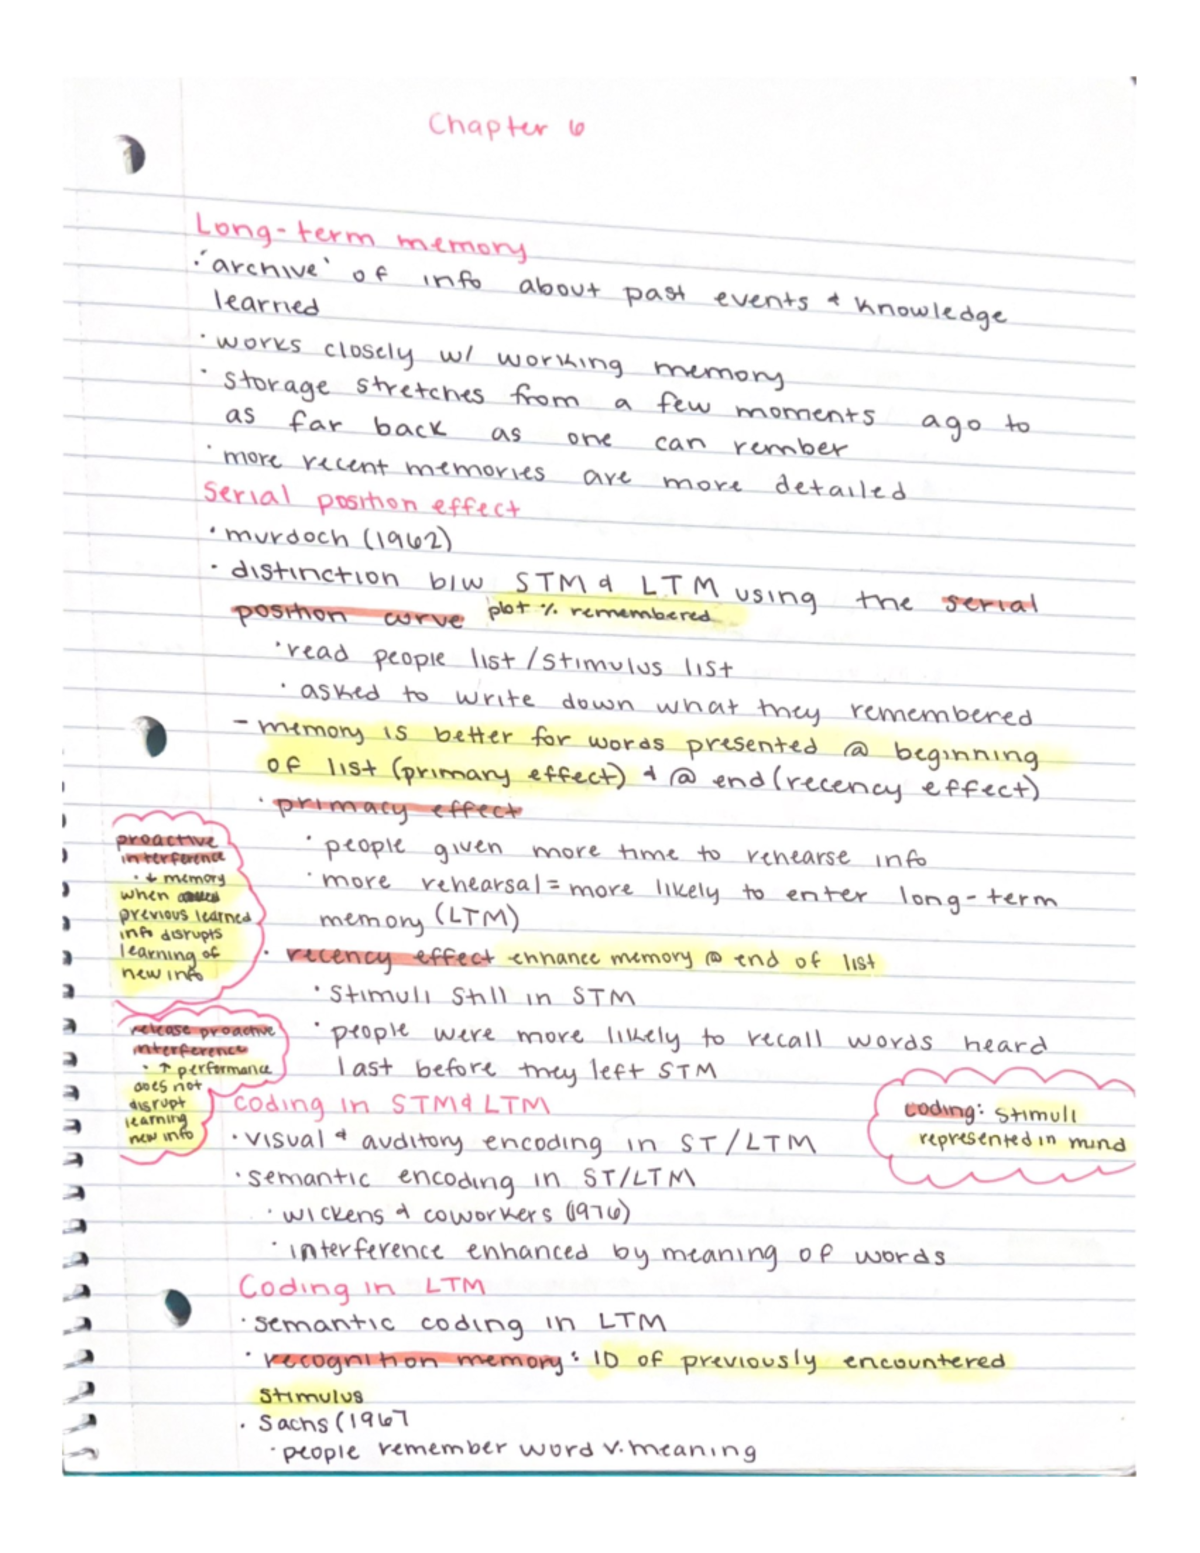 Chapter 6
Long-term memory
· 'archive' of info about past events & knowledge
learned
· works closely w/ working memory
· storage stretches from a few moments ago to
as far back as one can rember
· more recent memories are more detailed
Serial position effect
· murdoch (1962)
· distinction b/w STM & LTM using the serial
position curve plot % remembered
· read people list / stimulus list
· asked to write down what they remembered
- memory is better for words presented @ beginning
of list (primary effect) & @ end (recency effect)
· primacy effect
· people given more time to rehearse info
· more rehearsal = more likely to enter long-term
memory (LTM)
· recency effect enhance memory @ end of list
· Stimuli still in STM
· people were more likely to recall words heard
last before they left STM
proactive
interference
· ↓ memory
when
previous learned
info disrupts
learning of
new info
release proactive
interference
· ↑ performance
does not
disrupt
learning
new info
Coding in STM & LTM
coding: stimuli
represented in mind
· visual & auditory encoding in ST/LTM
· semantic encoding in ST/LTM
· wickens & coworkers (1976)
· interference enhanced by meaning of words
Coding in LTM
· semantic coding in LTM
· recognition memory: ID of previously encountered
stimulus
· Sachs (1967
· people remember word v. meaning